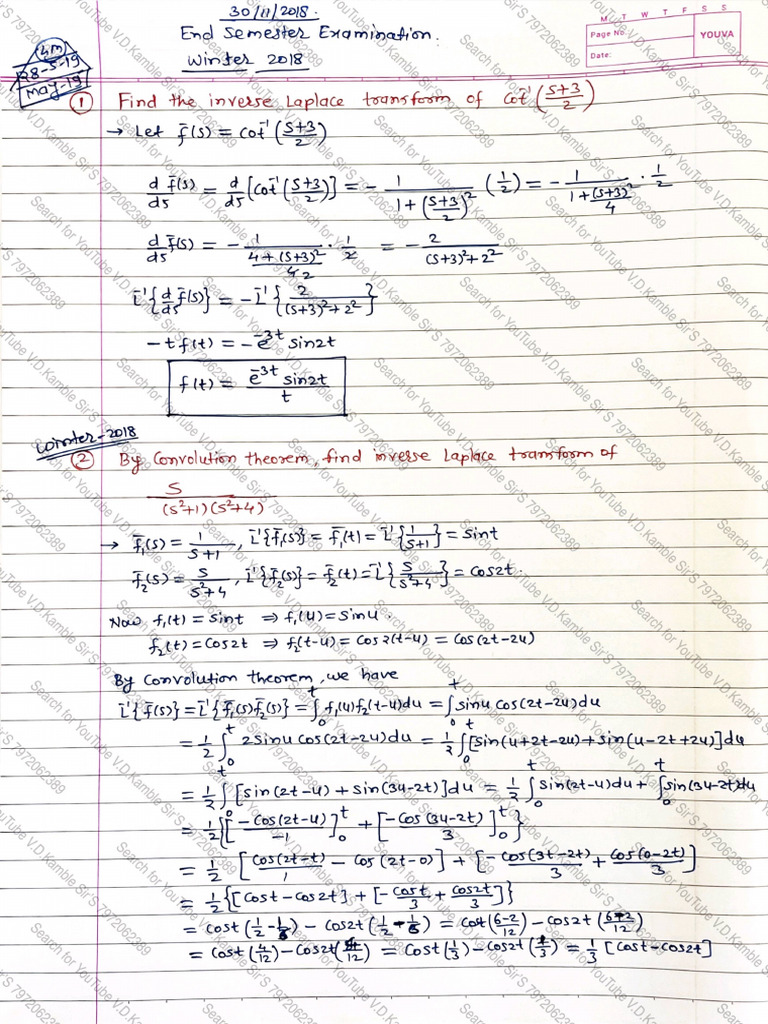 30/11/2018.
End Semester Examination.
Winter 2018
M T W T F S S
Page No.
YOUVA
Date:
4M
28-5-19
May-19
① Find the inverse Laplace transform of cot⁻¹((s+3)/2)
→ Let f̄(s) = cot⁻¹((s+3)/2)
d/ds f̄(s) = d/ds [cot⁻¹((s+3)/2)] = - 1/(1+((s+3)/2)²) (1/2) = - 1/(1+(s+3)²/4) · 1/2
d/ds f̄(s) = - 1/((4+(s+3)²)/4 2) · 1/2 = - 2/((s+3)²+2²)
L⁻¹{d/ds f̄(s)} = -L⁻¹{2/((s+3)²+2²)}
-t f(t) = -e⁻³ᵗ sin2t
f(t) = e⁻³ᵗ sin2t / t
Winter-2018
② By Convolution theorem, find inverse Laplace transform of
s/((s²+1)(s²+4))
→ f̄₁(s) = 1/(s+1), L⁻¹{f̄₁(s)} = f̄₁(t) = L⁻¹{1/(s+1)} = sint
f̄₂(s) = s/(s²+4), L⁻¹{f̄₂(s)} = f̄₂(t) = L⁻¹{s/(s²+4)} = cos2t.
Now f₁(t) = sint ⇒ f₁(u) = sinu.
f₂(t) = cos2t ⇒ f₂(t-u) = cos2(t-u) = cos(2t-2u)
By Convolution theorem, we have
L⁻¹{f̄(s)} = L⁻¹{f̄₁(s)f̄₂(s)} = ∫₀ᵗ f₁(u)f₂(t-u)du = ∫₀ᵗ sinu cos(2t-2u)du
= 1/2 ∫₀ᵗ 2sinu cos(2t-2u)du = 1/2 ∫₀ᵗ [sin(u+2t-2u)+sin(u-2t+2u)]du
= 1/2 ∫₀ᵗ [sin(2t-u)+sin(3u-2t)]du = 1/2 ∫₀ᵗ sin(2t-u)du + ∫₀ᵗ sin(3u-2t)du
= 1/2 {[-cos(2t-u)/-1]₀ᵗ + [-cos(3u-2t)/3]₀ᵗ}
= 1/2 [cos(2t-t)/1 - cos(2t-0)] + [-cos(3t-2t)/3 + cos(0-2t)/3]
= 1/2 {[cost-cos2t] + [-cost/3 + cos2t/3]}
= cost(1/2-1/6) - cos2t(1/2-1/6) = cost((6-2)/12) - cos2t((6-2)/12)
= cost(4/12) - cos2t(4/12) = cost(1/3) - cos2t(1/3) = 1/3 [cost-cos2t]
Search for YouTube V.D.Kamble Sir'S 7972062389